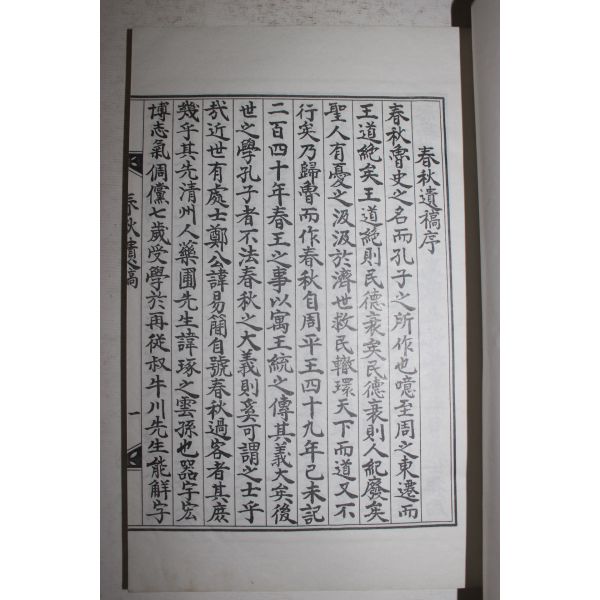 春秋遺稿序
春秋魯史之名而孔子之所作也噫至周之東遷而
王道絶矣王道絶則民德衰矣民德衰則人紀廢矣
聖人有憂之汲汲於濟世救民轍環天下而道又不
行矣乃歸魯而作春秋自周平王四十九年己未記
二百四十年春王之事以寓王統之傳其義大矣後
世之學孔子者不法春秋之大義則奚可謂之士乎
㢤近世有處士鄭公諱易簡自號春秋過客者其庶
幾乎其先清州人藥圃先生諱琢之雲孫也器宇宏
博志氣倜儻七歲受學於再從叔牛川先生能解字
春秋遺稿
一